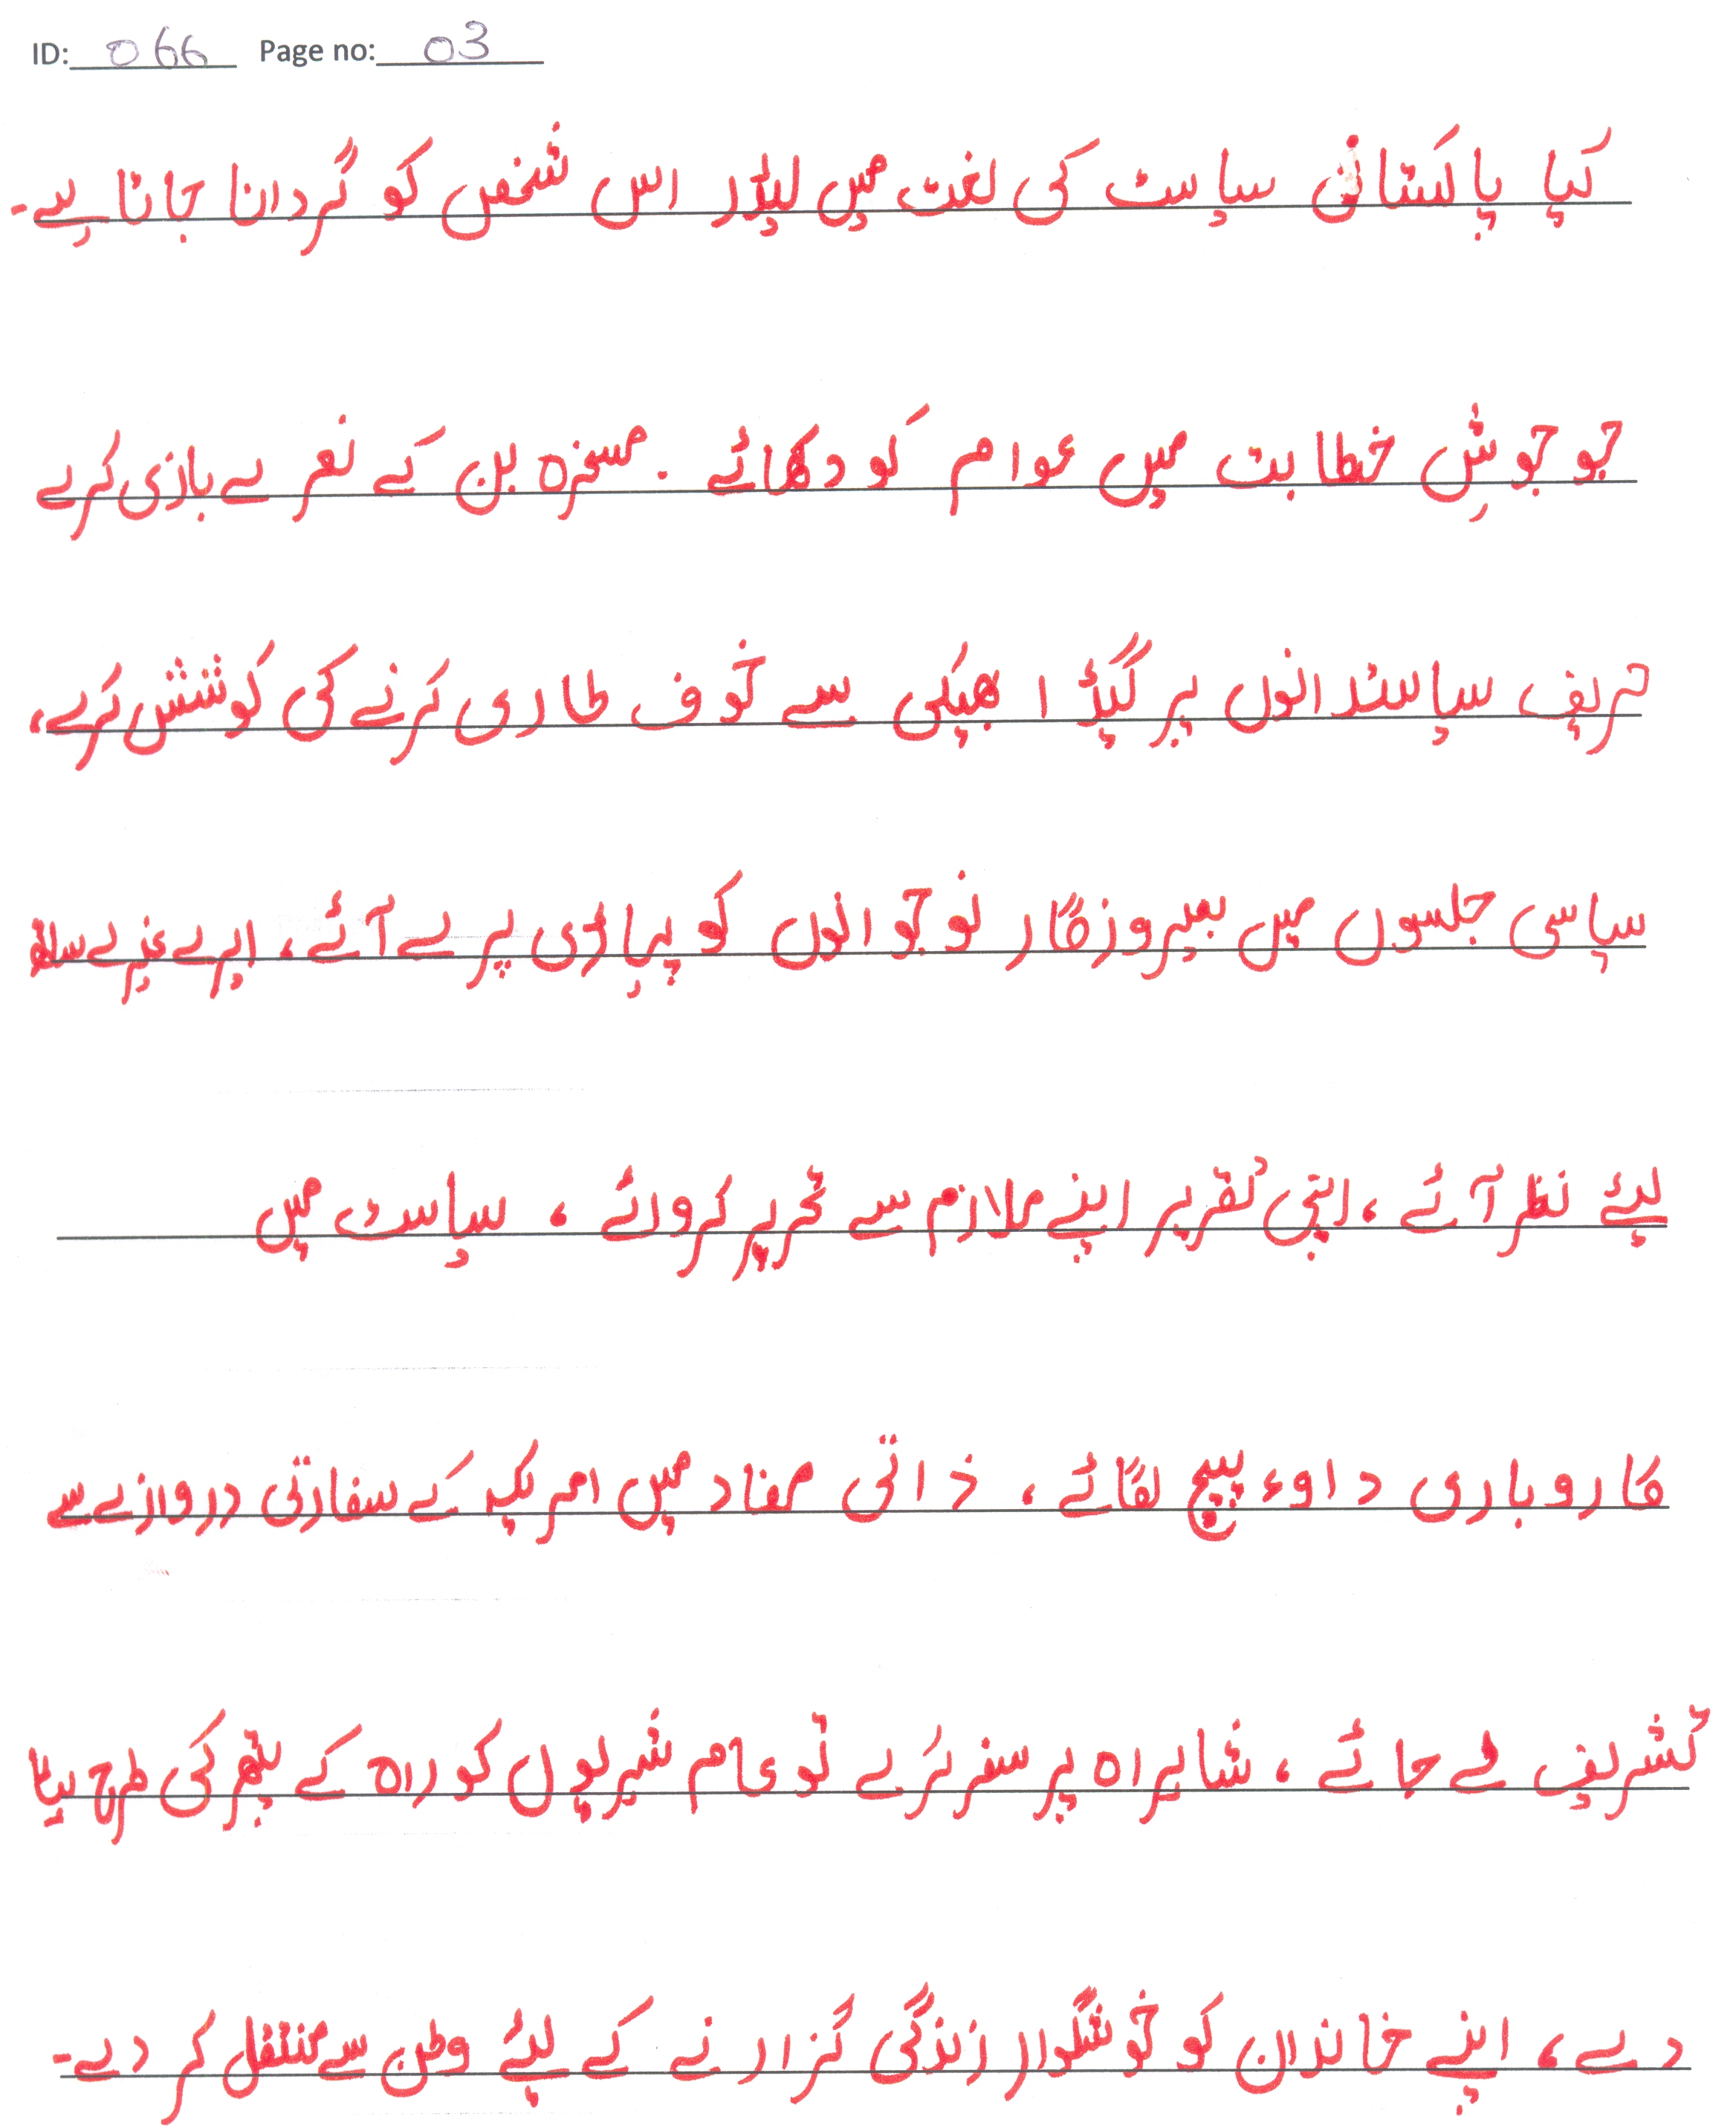 ID: 066 Page no: 03
کیا پاکستانی سیاست کی لغت میں لیڈر اس شخص کو گردانا جاتا ہے۔
جو جوشِ خطابت میں عوام کو دکھائے ۔ مسخرہ بن کے نعرے بازی کرے
حریف سیاستدانوں پر گیڈر بھبکی سے خوف طاری کرنے کی کوشش کرے،
سیاسی جلسوں میں بیروزگار نوجوانوں کو پہاڑی پر لے آئے، ایرے غیرے ساتھ
لیئے نظر آئے، اپنی تقریر اپنے ملازم سے تحریر کروائے ، سیاست میں
کاروباری داوء پیچ لگائے ، ذاتی مفاد میں امریکہ کے سفارتی دروازے سے
تشریف لے جائے ، شاہراہ پر سفر کرے تو عام شہریوں کو راہ کے پتھر کی طرح ہٹا
دے، اپنے خاندان کو خوشگوار زندگی گزارنے کے لیئے وطن سے منتقل کر دے۔